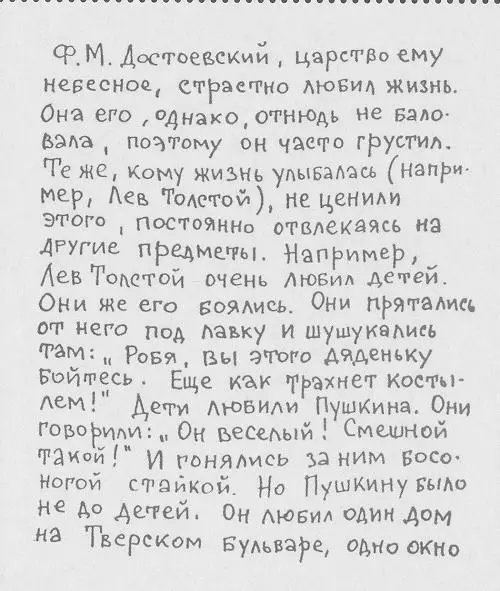 Ф.М. Достоевский, царство ему
небесное, страстно любил жизнь.
Она его, однако, отнюдь не бало-
вала, поэтому он часто грустил.
Те же, кому жизнь улыбалась (напри-
мер, Лев Толстой), не ценили
этого, постоянно отвлекаясь на
другие предметы. Например,
Лев Толстой очень любил детей.
Они же его боялись. Они прятались
от него под лавку и шушукались
там: „Робя, вы этого дяденьку
бойтесь. Еще как трахнет косты-
лем!" Дети любили Пушкина. Они
говорили: „Он веселый! Смешной
такой!" И гонялись за ним босо-
ногой стайкой. Но Пушкину было
не до детей. Он любил один дом
на Тверском бульваре, одно окно